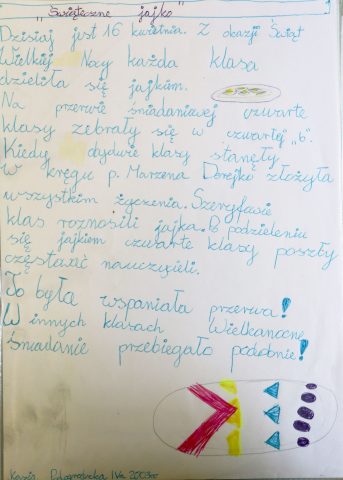 „Świąteczne jajko”
Dzisiaj jest 16 kwietnia. Z okazji Świąt
Wielkiej Nocy każda klasa
dzieliła się jajkiem.
Na przerwie śniadaniowej czwarte
klasy zebrały się w czwartej „b”.
Kiedy dwie klasy stanęły
w kręgu p. Marzena Dorejko złożyła
wszystkim życzenia. Szeryfowie
klas roznosili jajka. Po podzieleniu
się jajkiem czwarte klasy poszły
częstować nauczycieli.
To była wspaniała przerwa!
W innych klasach Wielkanocne
Śniadanie przebiegało podobnie!
Kasia IVa 2003r